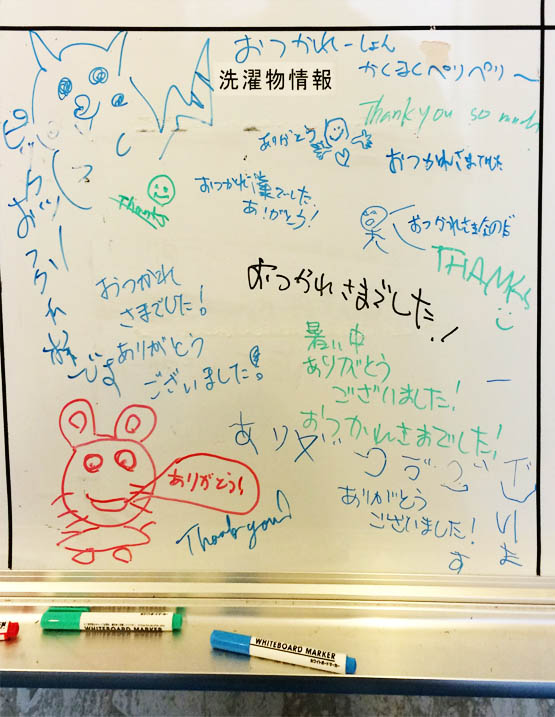 おつかれーしょん
かくまくペリペリ〜
洗濯物情報
Thank you so much
ありがとう
おつかれさまでした
おつかれ様でーした
ありがとう!
Thanks
おつかれさまなのだ
THANKS
おつかれさまでした!
おつかれ
さまでした!
ありがとう
ございました!
暑い中
ありがとう
ございました!
おつかれさまでした!
ありがとう!
Thank you!
ありがとう
ございました!
WHITEBOARD MARKER
WHITEBOARD MARKER
ホワイトボードマーカー